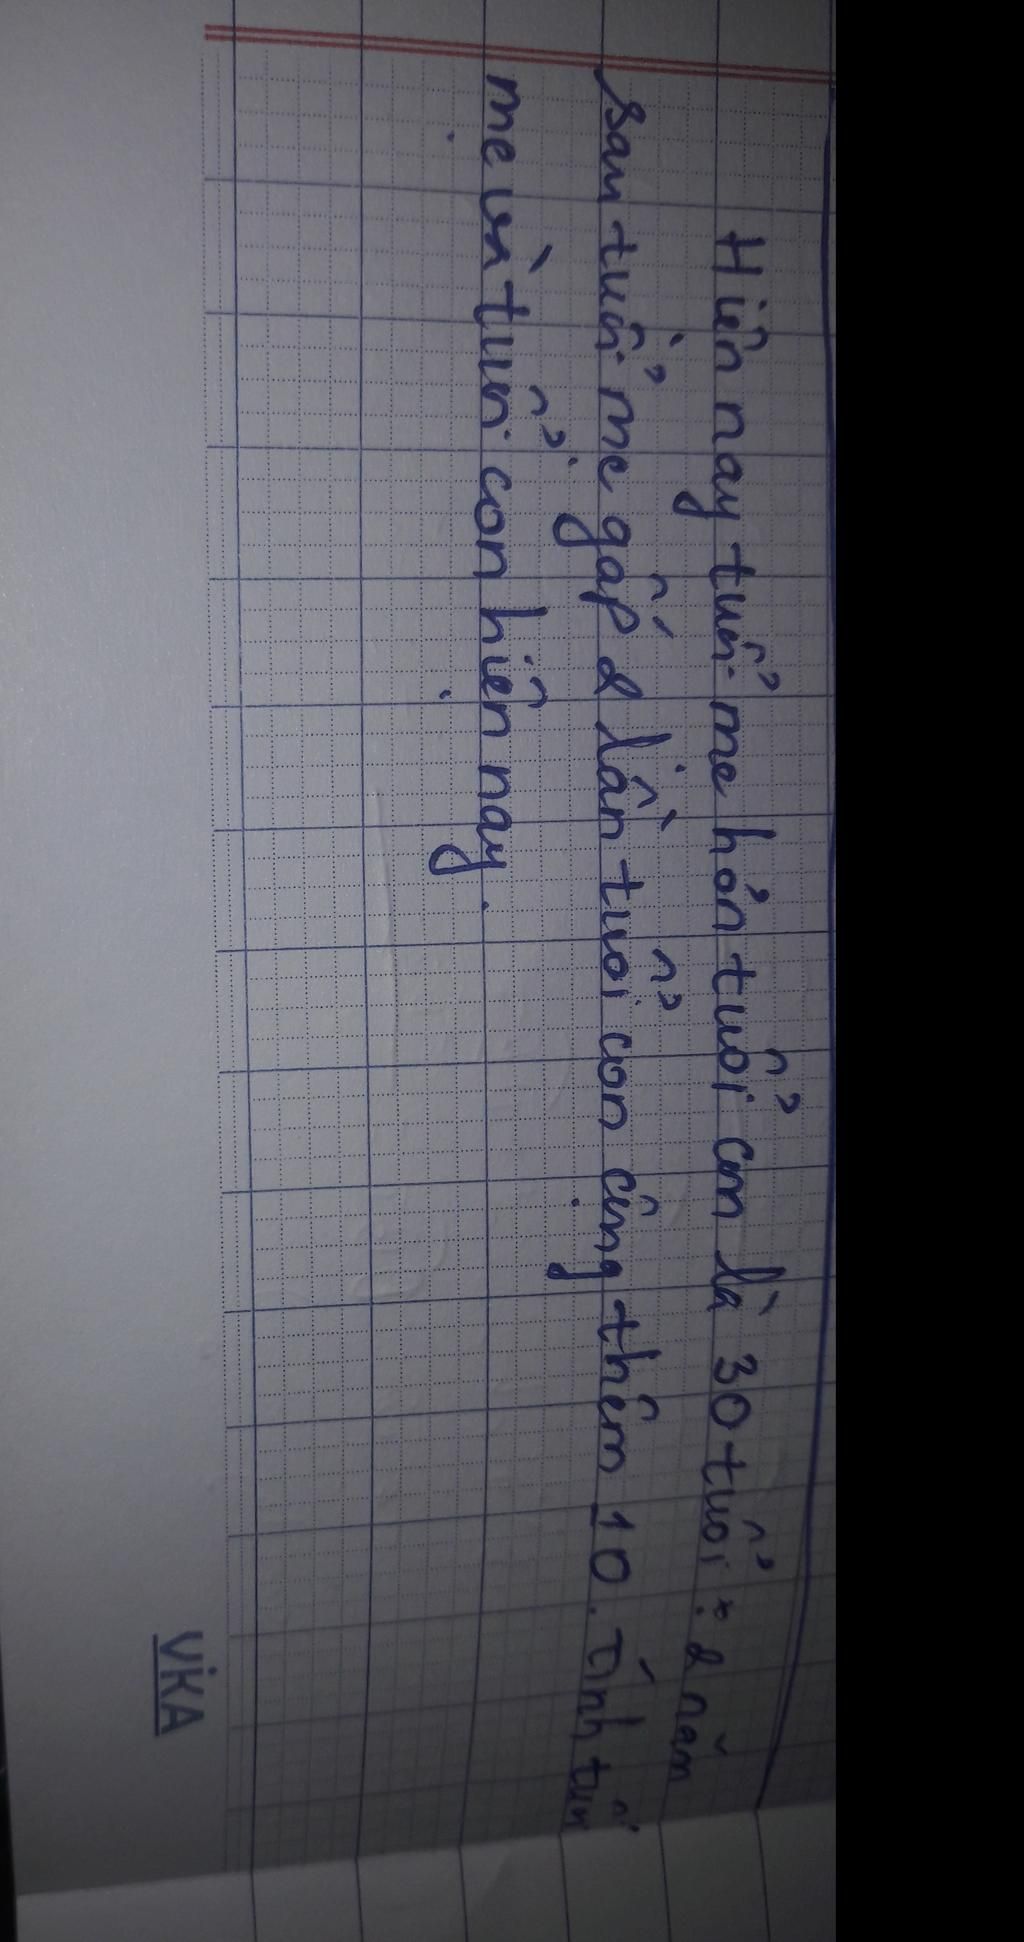 Hiên nay tuổi mẹ hơn tuổi con là 30 tuổi. 2 năm
sau tuổi mẹ gấp 2 lần tuổi con cộng thêm 10. Tính tuổi
mẹ và tuổi con hiện nay.
VKA